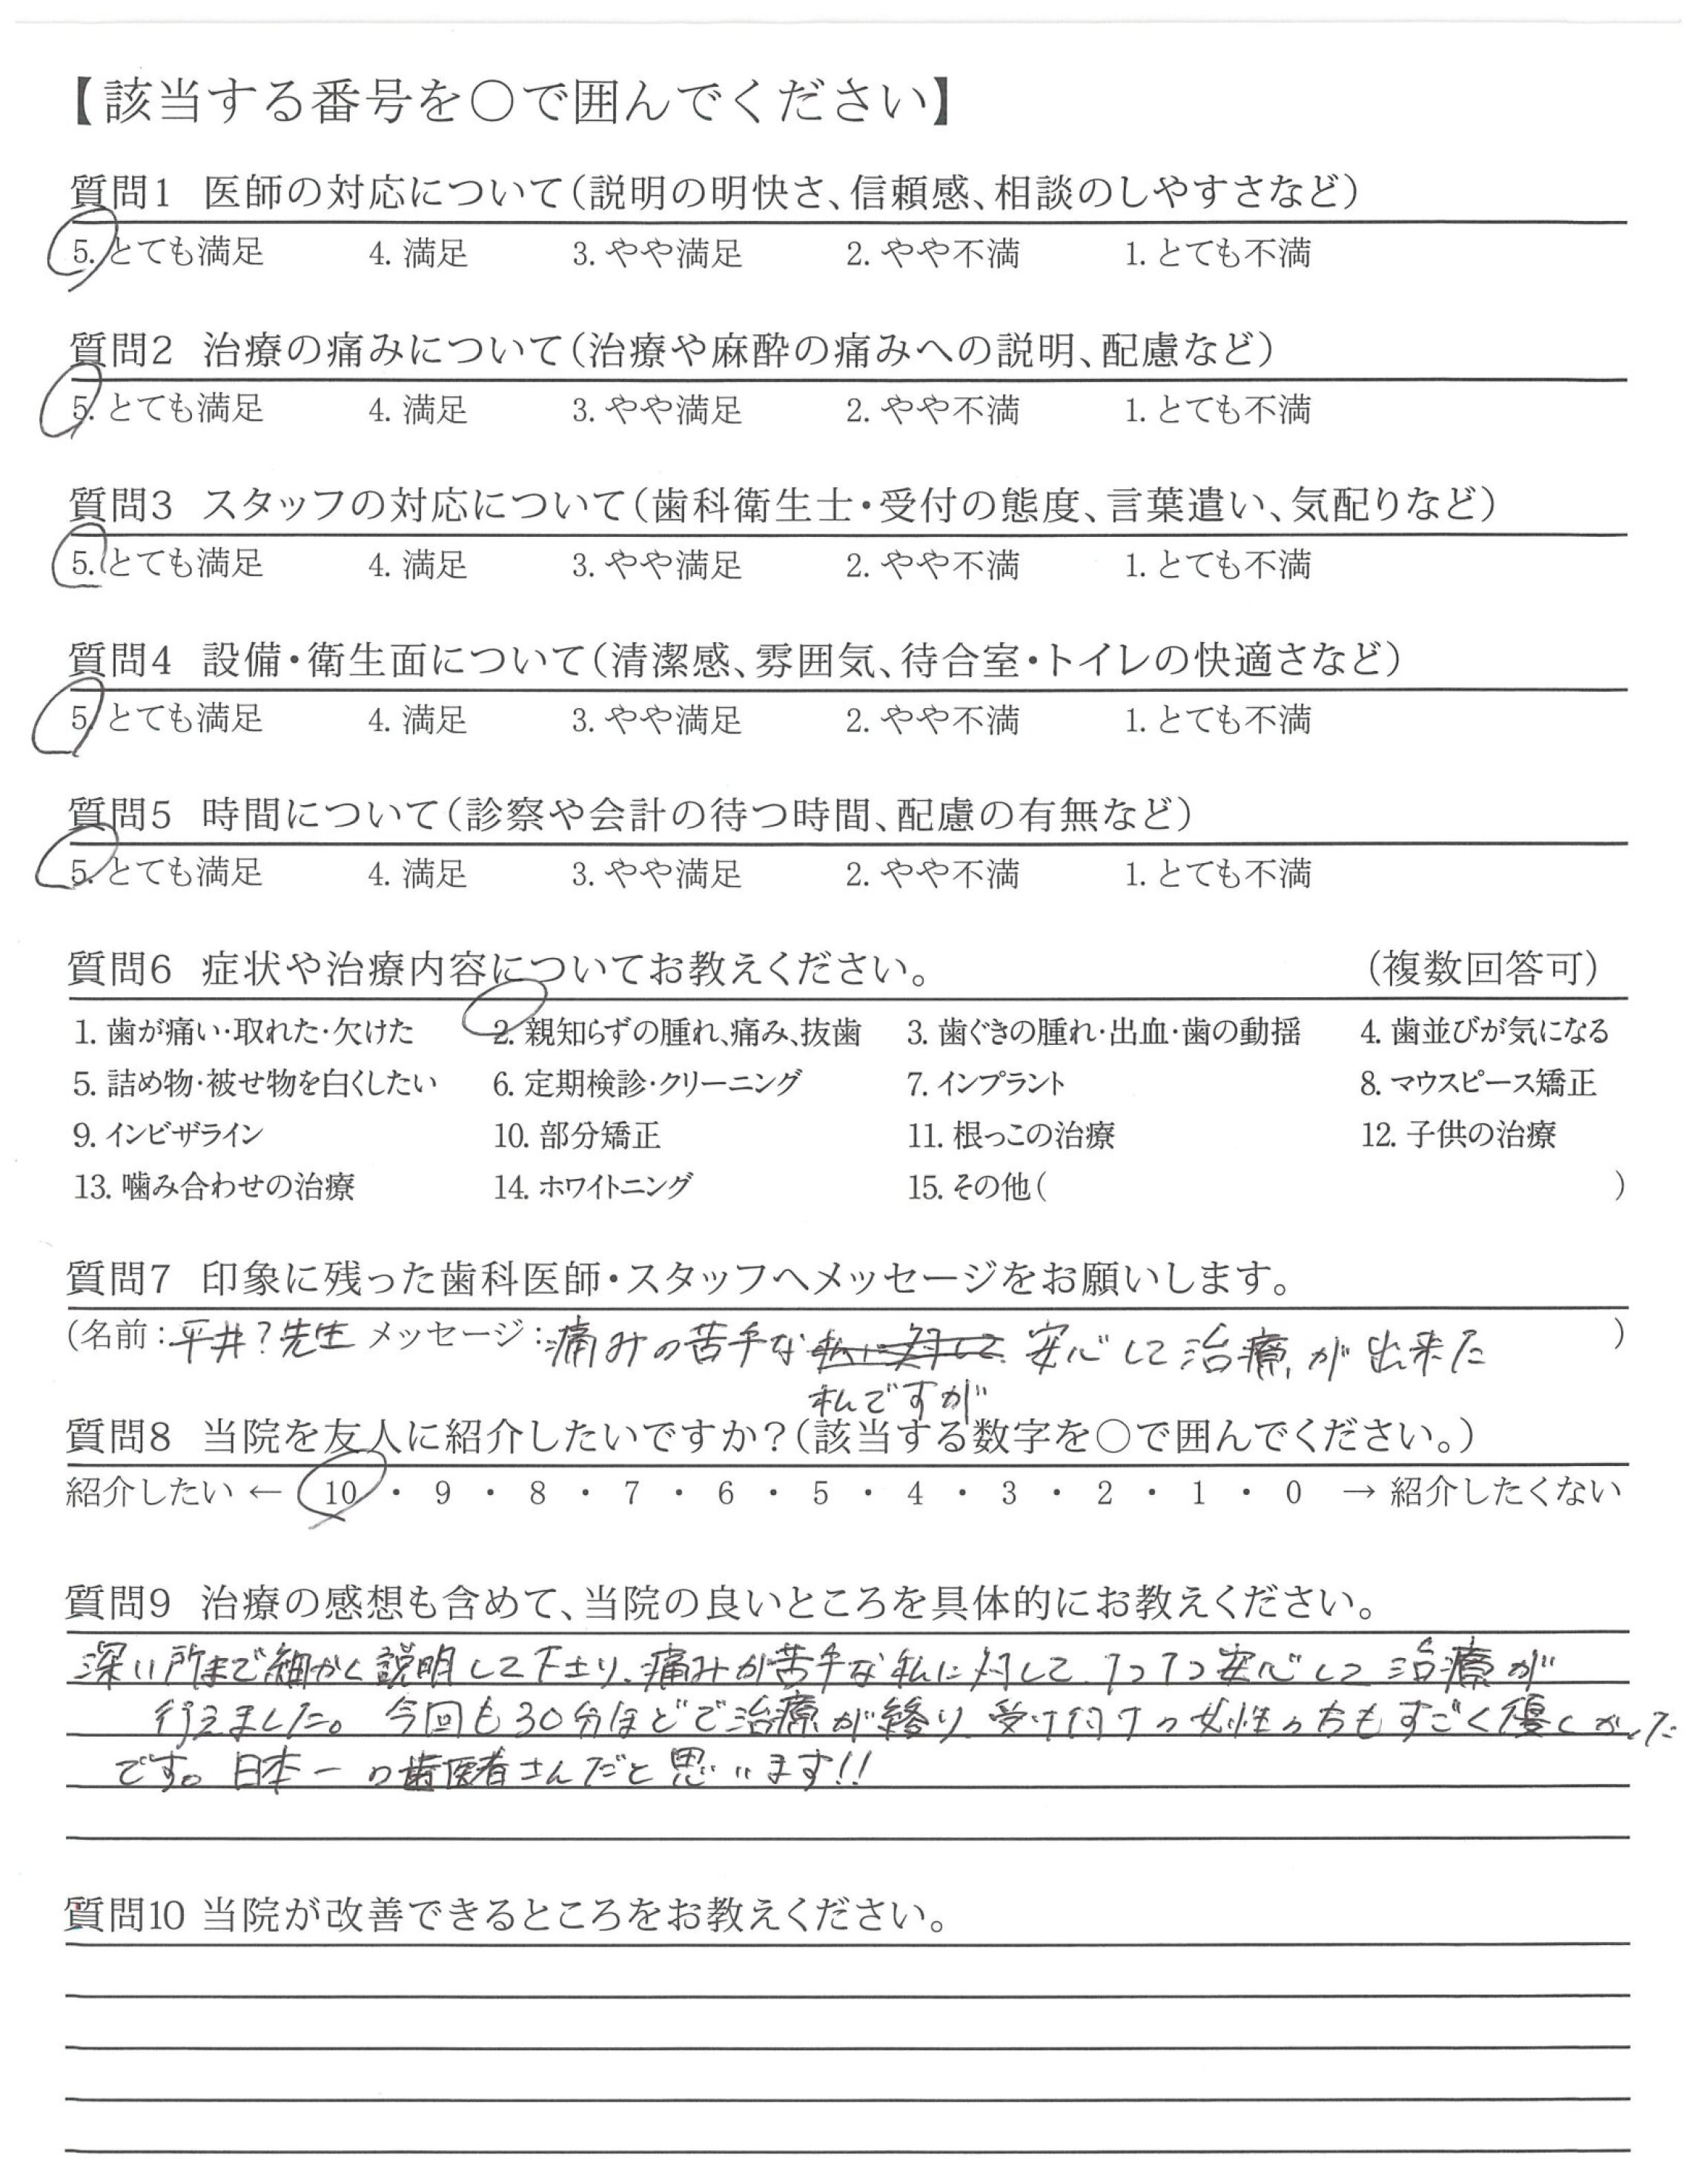 【該当する番号を〇で囲んでください】
質問1 医師の対応について(説明の明快さ、信頼感、相談のしやすさなど)
5. とても満足 4. 満足 3. やや満足 2. やや不満 1. とても不満
質問2 治療の痛みについて(治療や麻酔の痛みへの説明、配慮など)
5. とても満足 4. 満足 3. やや満足 2. やや不満 1. とても不満
質問3 スタッフの対応について(歯科衛生士・受付の態度、言葉遣い、気配りなど)
5. とても満足 4. 満足 3. やや満足 2. やや不満 1. とても不満
質問4 設備・衛生面について(清潔感、雰囲気、待合室・トイレの快適さなど)
5. とても満足 4. 満足 3. やや満足 2. やや不満 1. とても不満
質問5 時間について(診察や会計の待つ時間、配慮の有無など)
5. とても満足 4. 満足 3. やや満足 2. やや不満 1. とても不満
質問6 症状や治療内容についてお教えください。 (複数回答可)
1. 歯が痛い・取れた・欠けた 2. 親知らずの腫れ、痛み、抜歯 3. 歯ぐきの腫れ・出血・歯の動揺 4. 歯並びが気になる
5. 詰め物・被せ物を白くしたい 6. 定期検診・クリーニング 7. インプラント 8. マウスピース矯正
9. インビザライン 10. 部分矯正 11. 根っこの治療 12. 子供の治療
13. 噛み合わせの治療 14. ホワイトニング 15. その他( )
質問7 印象に残った歯科医師・スタッフへメッセージをお願いします。
(名前:平井?先生 メッセージ:痛みの苦手な私に対して 安心して治療が出来た )
私ですが
質問8 当院を友人に紹介したいですか?(該当する数字を〇で囲んでください。)
紹介したい ← 10 ・ 9 ・ 8 ・ 7 ・ 6 ・ 5 ・ 4 ・ 3 ・ 2 ・ 1 ・ 0 → 紹介したくない
質問9 治療の感想も含めて、当院の良いところを具体的にお教えください。
深い所まで細かく説明して下さり、痛みが苦手な私に対して、1つ1つ安心して治療が
行えました。今回も30分ほどで治療が終り、受け付けの女性の方もすごく優しかった
です。日本一の歯医者さんだと思います!!
質問10 当院が改善できるところをお教えください。